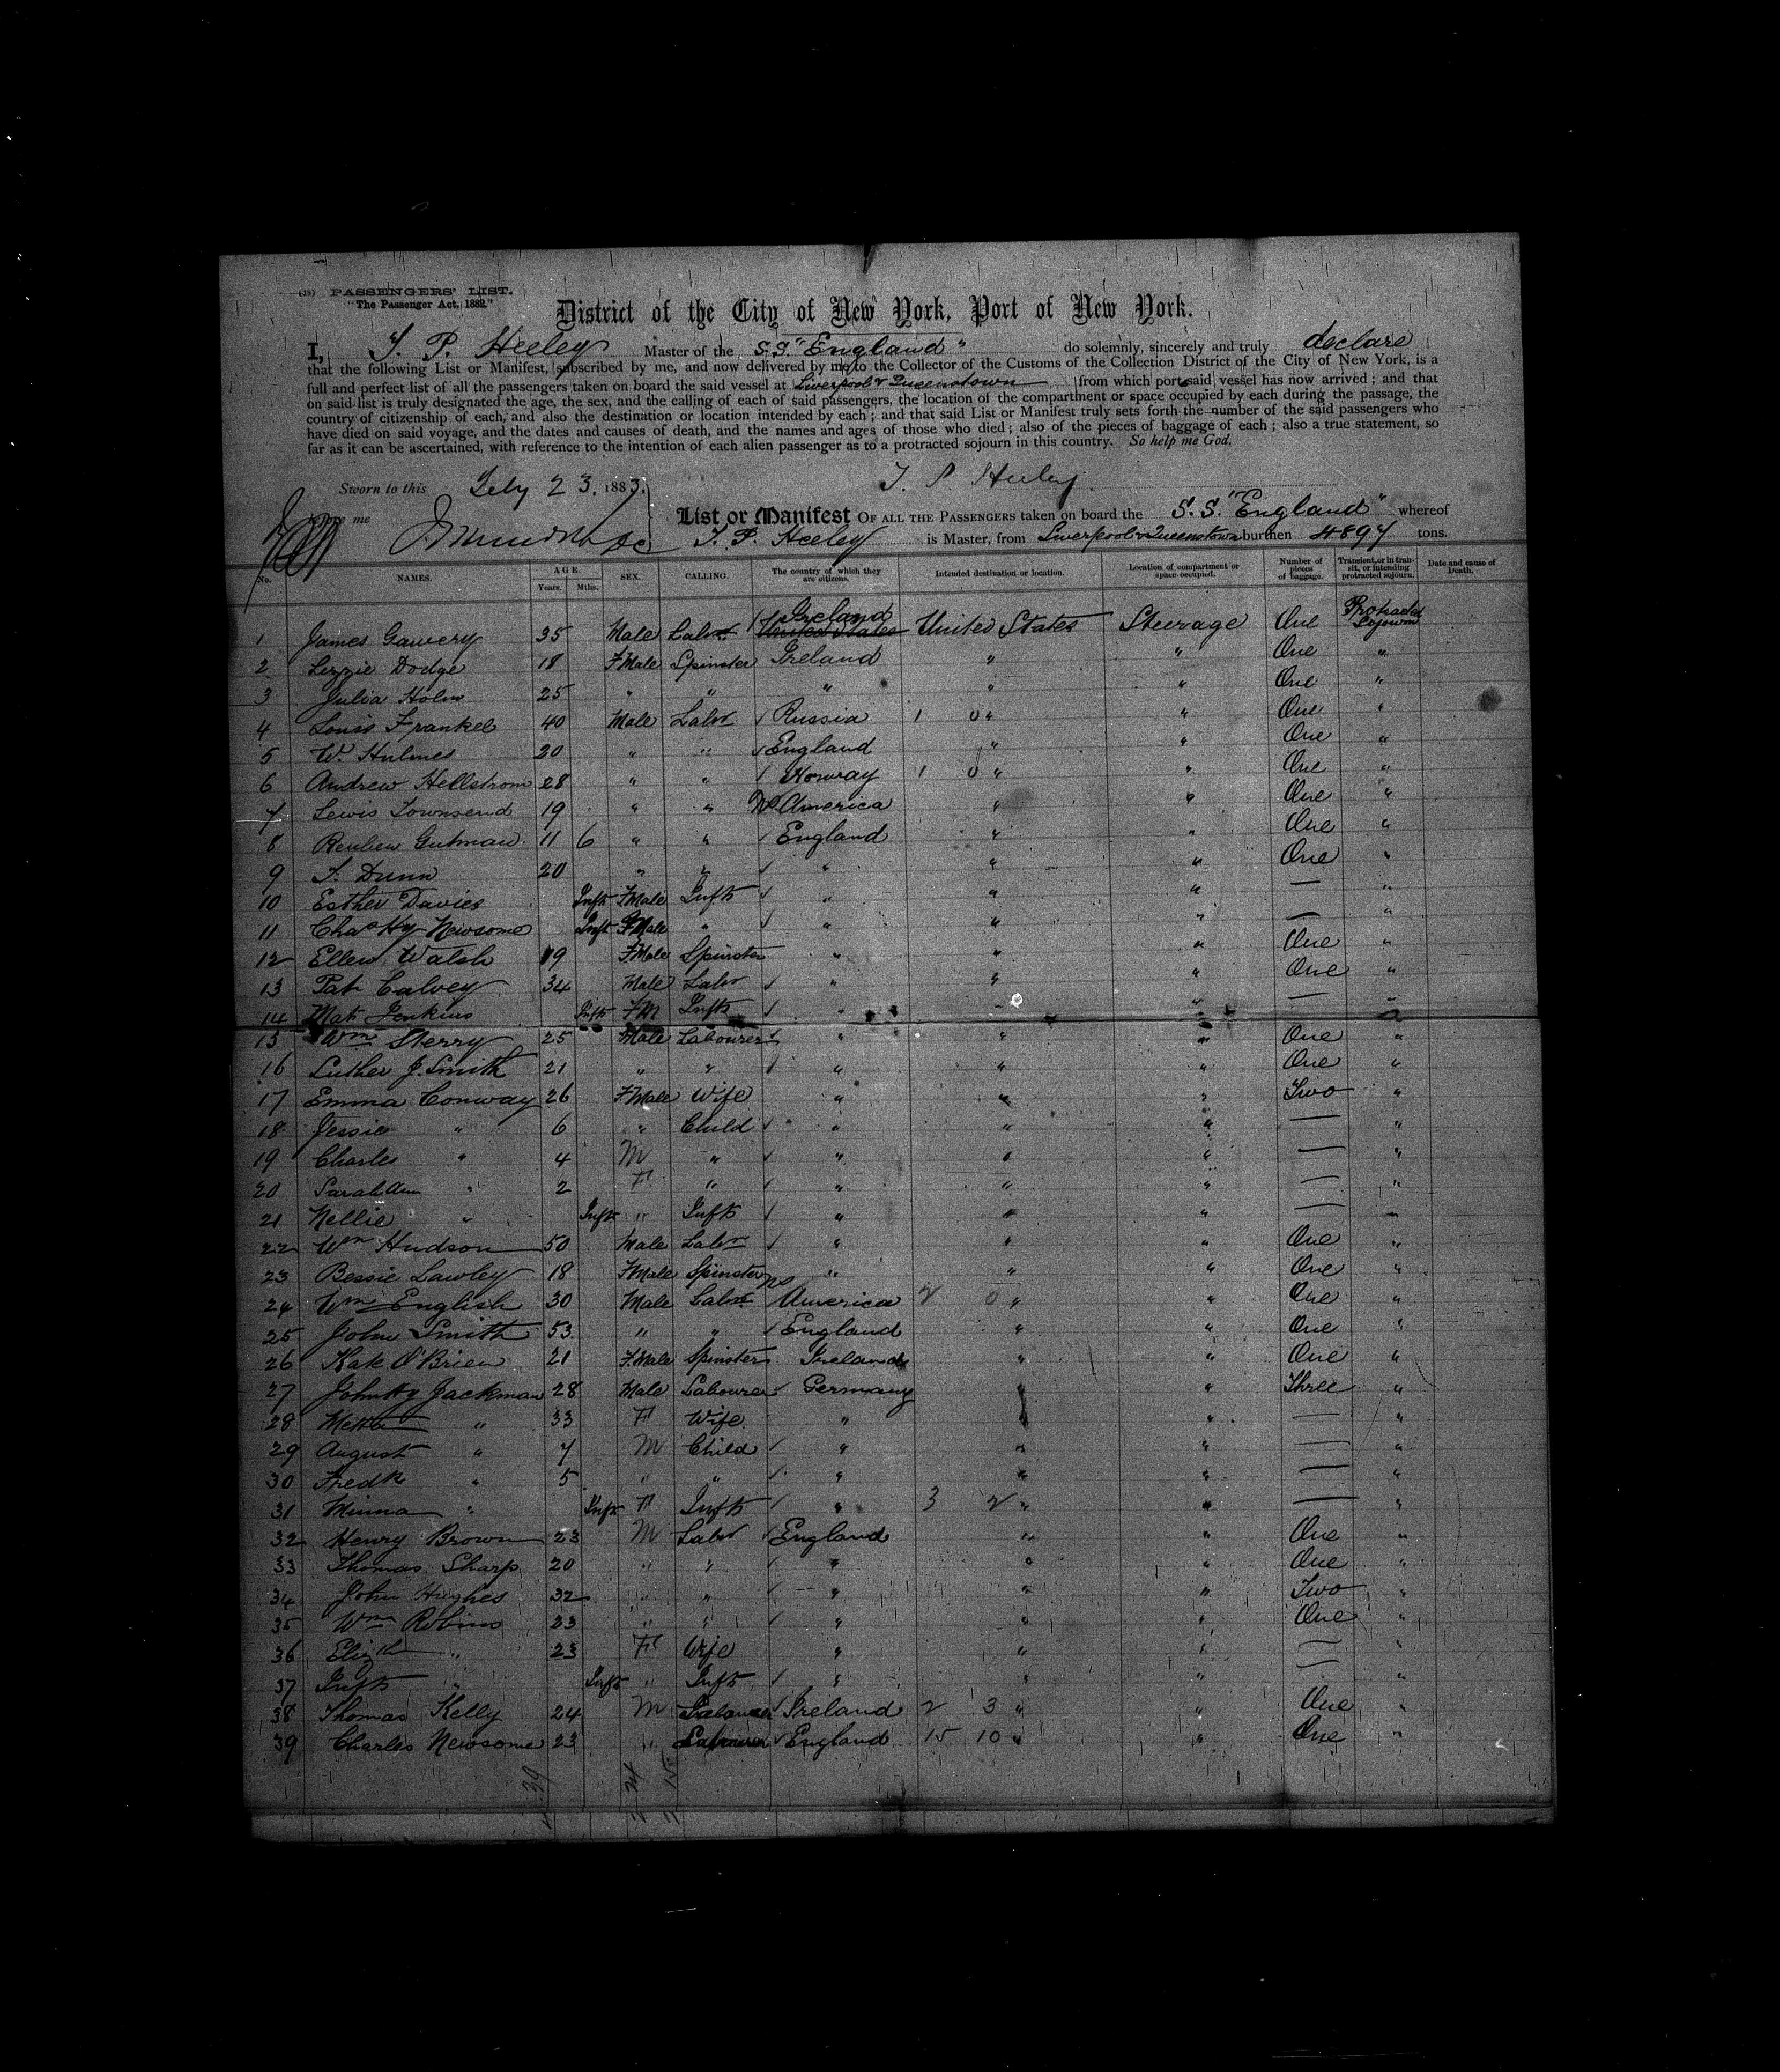 (18) PASSENGERS' LIST.
"The Passenger Act, 1882."
District of the City of New York, Port of New York.
I, T. P. Heeley Master of the S.S. "England" do solemnly, sincerely and truly declare
that the following List or Manifest, subscribed by me, and now delivered by me to the Collector of the Customs of the Collection District of the City of New York, is a
full and perfect list of all the passengers taken on board the said vessel at Liverpool & Queenstown from which port said vessel has now arrived; and that
on said list is truly designated the age, the sex, and the calling of each of said passengers, the location of the compartment or space occupied by each during the passage, the
country of citizenship of each, and also the destination or location intended by each; and that said List or Manifest truly sets forth the number of the said passengers who
have died on said voyage, and the dates and causes of death, and the names and ages of those who died; also of the pieces of baggage of each; also a true statement, so
far as it can be ascertained, with reference to the intention of each alien passenger as to a protracted sojourn in this country. So help me God.
Sworn to this Feby 23. 1883. T. P. Heeley
before me List or Manifest OF ALL THE PASSENGERS taken on board the S.S. "England" whereof
T. P. Heeley is Master, from Liverpool & Queenstown burthen 4897 tons.
No. NAMES. AGE. Years. Mths. SEX. CALLING. The country of which they are citizens. Intended destination or location. Location of compartment or space occupied. Number of pieces of baggage. Transient, or in transit, or intending protracted sojourn. Date and cause of Death.
1 James Gawery 35 Male Labr Ireland United States United States Steerage One Protracted Sojourn
2 Lizzie Dodge 18 FMale Spinster Ireland " " One "
3 Julia Holm 25 " " " " " One "
4 Louis Frankel 40 Male Labr Russia 1 0 " " One "
5 W. Hulmes 20 " " England " " One "
6 Andrew Hellstrom 28 " " Norway 1 0 " " One "
7 Lewis Townsend 19 " " No America " " One "
8 Reuben Gutman 11 6 " " England " " One "
9 T. Dunn 20 " " " " " One "
10 Esther Davies Inft FMale Inft " " " — "
11 Chas Hy Newsome Inft Male " " " " — "
12 Ellen Walsh 19 FMale Spinster " " " One "
13 Pat Calvey 34 Male Labr " " " One "
14 Mat Jenkins Inft FM Inft " " " — "
15 Wm Sterry 25 Male Labourer " " " One "
16 Luther J. Smith 21 " " " " " One "
17 Emma Conway 26 FMale Wife " " " Two "
18 Jessie " 6 " Child " " " — "
19 Charles " 4 M " " " " — "
20 Sarah Ann " 2 F " " " " — "
21 Nellie " Inft " Inft " " " — "
22 Wm Hudson 50 Male Labr " " " One "
23 Bessie Lawley 18 FMale Spinster " " " One "
24 Wm English 30 Male Labr no America 2 0 " " One "
25 John Smith 53 " " England " " One "
26 Kate O'Brien 21 F.Male Spinster Ireland " " One "
27 John Hy Jackman 28 Male Labourer Germany " " Three "
28 Metta " 33 F Wife " " " — "
29 August " 7 M Child " " " — "
30 Fredk " 5 " " " " " — "
31 Minna " Inft F Inft " 3 2 " " — "
32 Henry Brown 23 M Labr England " " One "
33 Thomas Sharp 20 " " " " " One "
34 John Hughes 32 " " " " " Two "
35 Wm Robins 23 " " " " " One "
36 Elizth " 23 F Wife " " " — "
37 Inft " Inft " Inft " " " — "
38 Thomas Kelly 24 M Labourer Ireland 2 3 " " One "
39 Charles Newsome 23 " Labourer England 15 10 " " One "
39 24 15